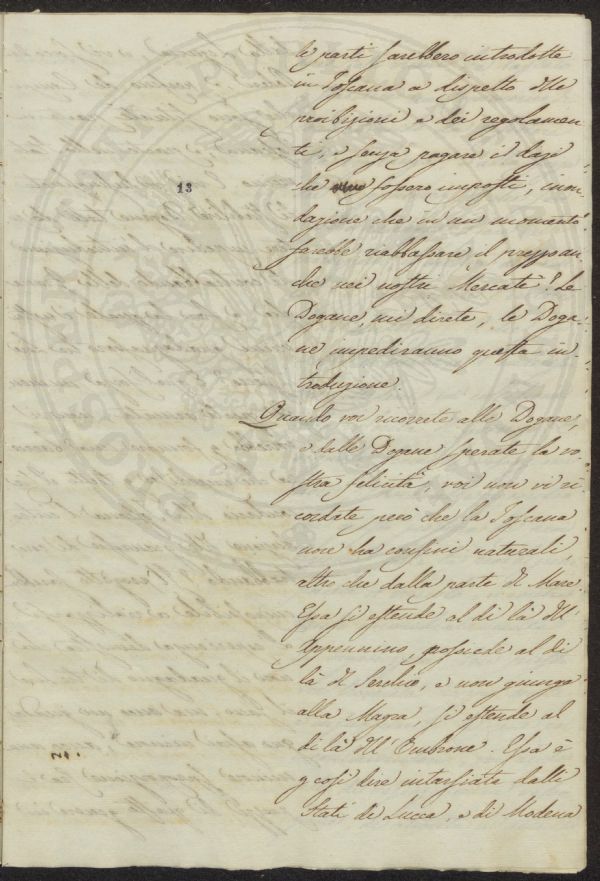 le parti sarebbero introdotte
in Toscana a dispetto delle
proibizioni e dei regolamen-
ti, e senza pagare i dazi
che fossero imposti, inon-
dazione che in un momento
farebbe riabbassare il prezzo an-
che nei nostri Mercati? Le
Dogane, mi direte, le Doga-
ne impediranno questa in-
troduzione.
Quando voi ricorrete alle Dogane,
e dalle Dogane sperate la vo-
stra felicità, voi non vi ri-
cordate però che la Toscana
non ha confini naturali,
altro che dalla parte di Mare.
Essa si estende al di là dell'
Appennino, possiede al di
là del Serchio, e non giunge
alla Magra, si estende al
di là dell'Ombrone. Essa è
p così dire intarsiata dalli
Stati di Lucca, e di Modena
13